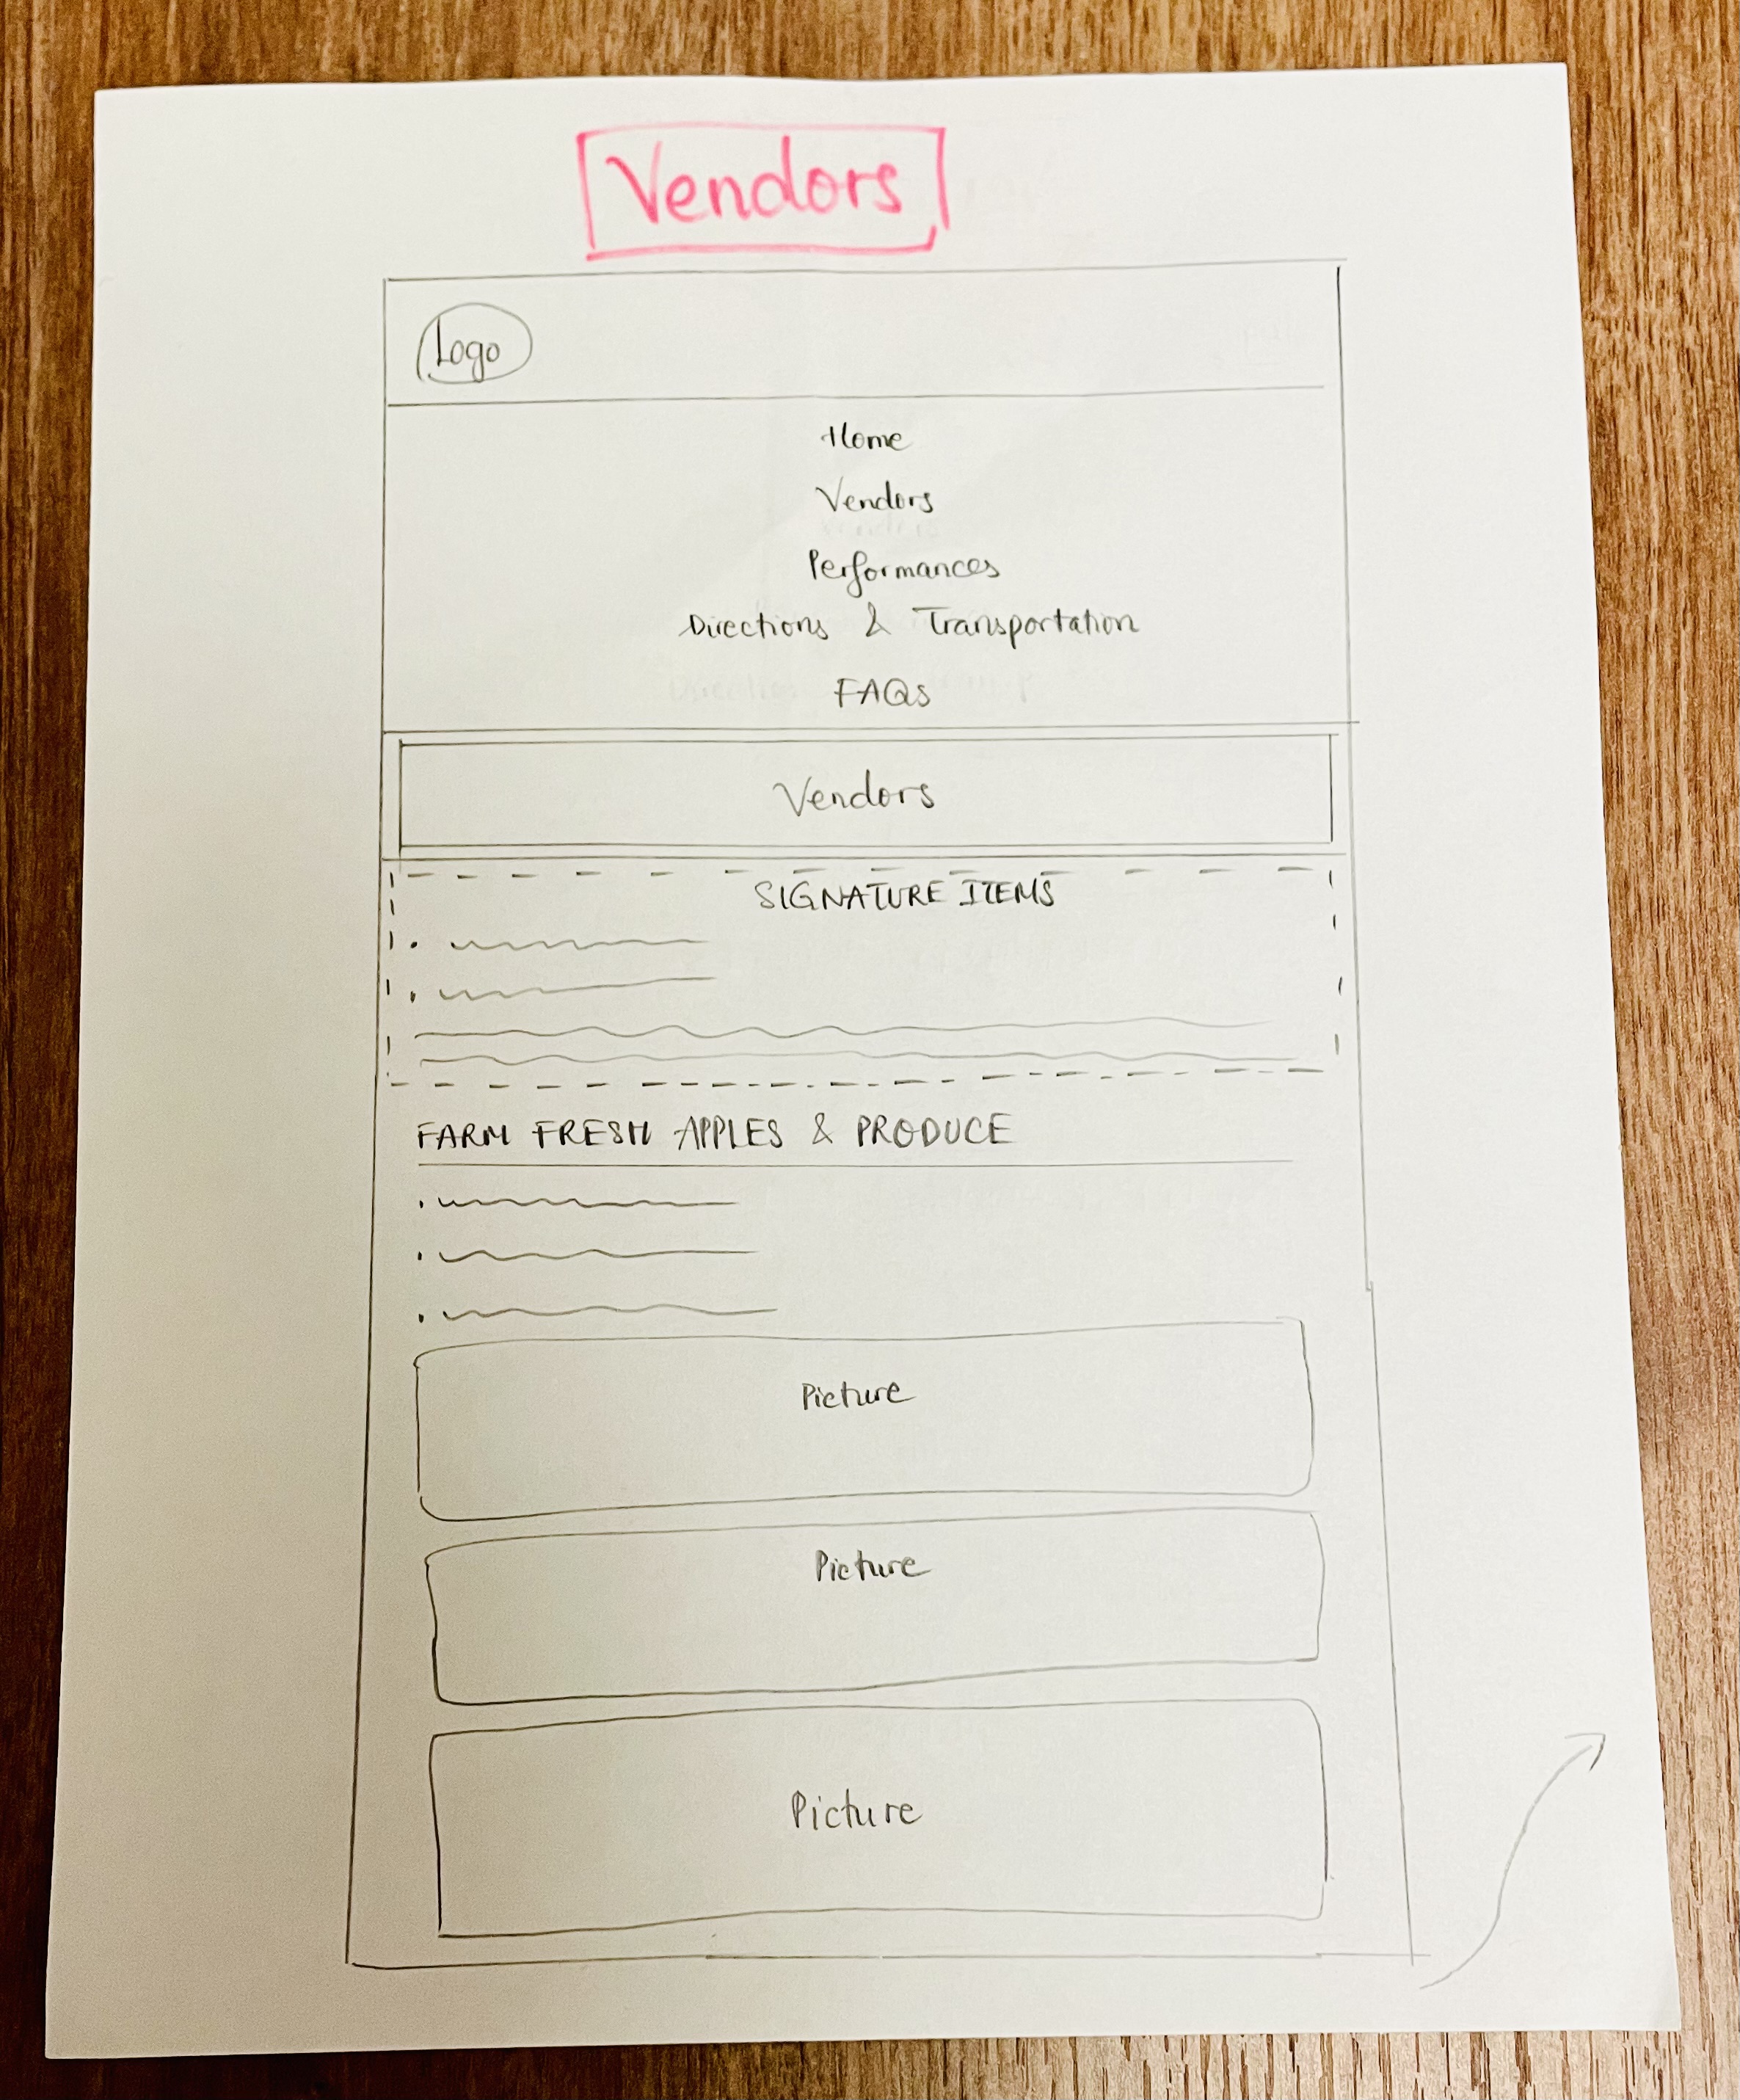 Vendors
Logo
Home
Vendors
Performances
Directions & Transportation
FAQs
Vendors
SIGNATURE ITEMS
FARM FRESH APPLES & PRODUCE
Picture
Picture
Picture